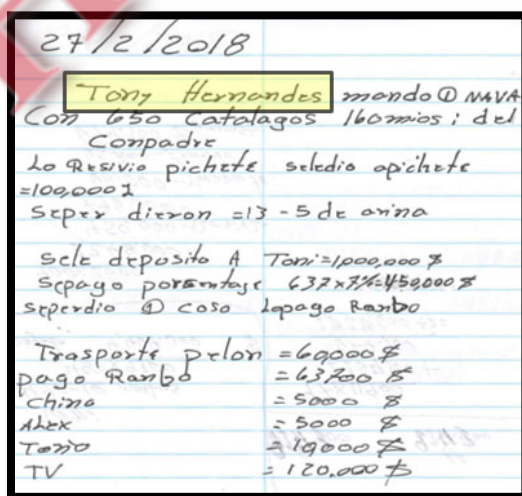 27/2/2018
Tony Hernandes mando ① NAVA
Con 650 Catalagos 160mios; del
Conpadre
Lo Resivio pichete seledio apichete
=100,000$
Seper dieron =13 - 5 de arina
sele deposito A Toni=1,000,000 $
Sepago porsentaje 637x7%=450,000 $
seperdio ① coso Lopago Ranbo
Trasporte pelon =60,000 $
pago Ranbo =63700 $
China =5000 $
ALex =5000 $
Tonio =10,000 $
TV =120,000 $